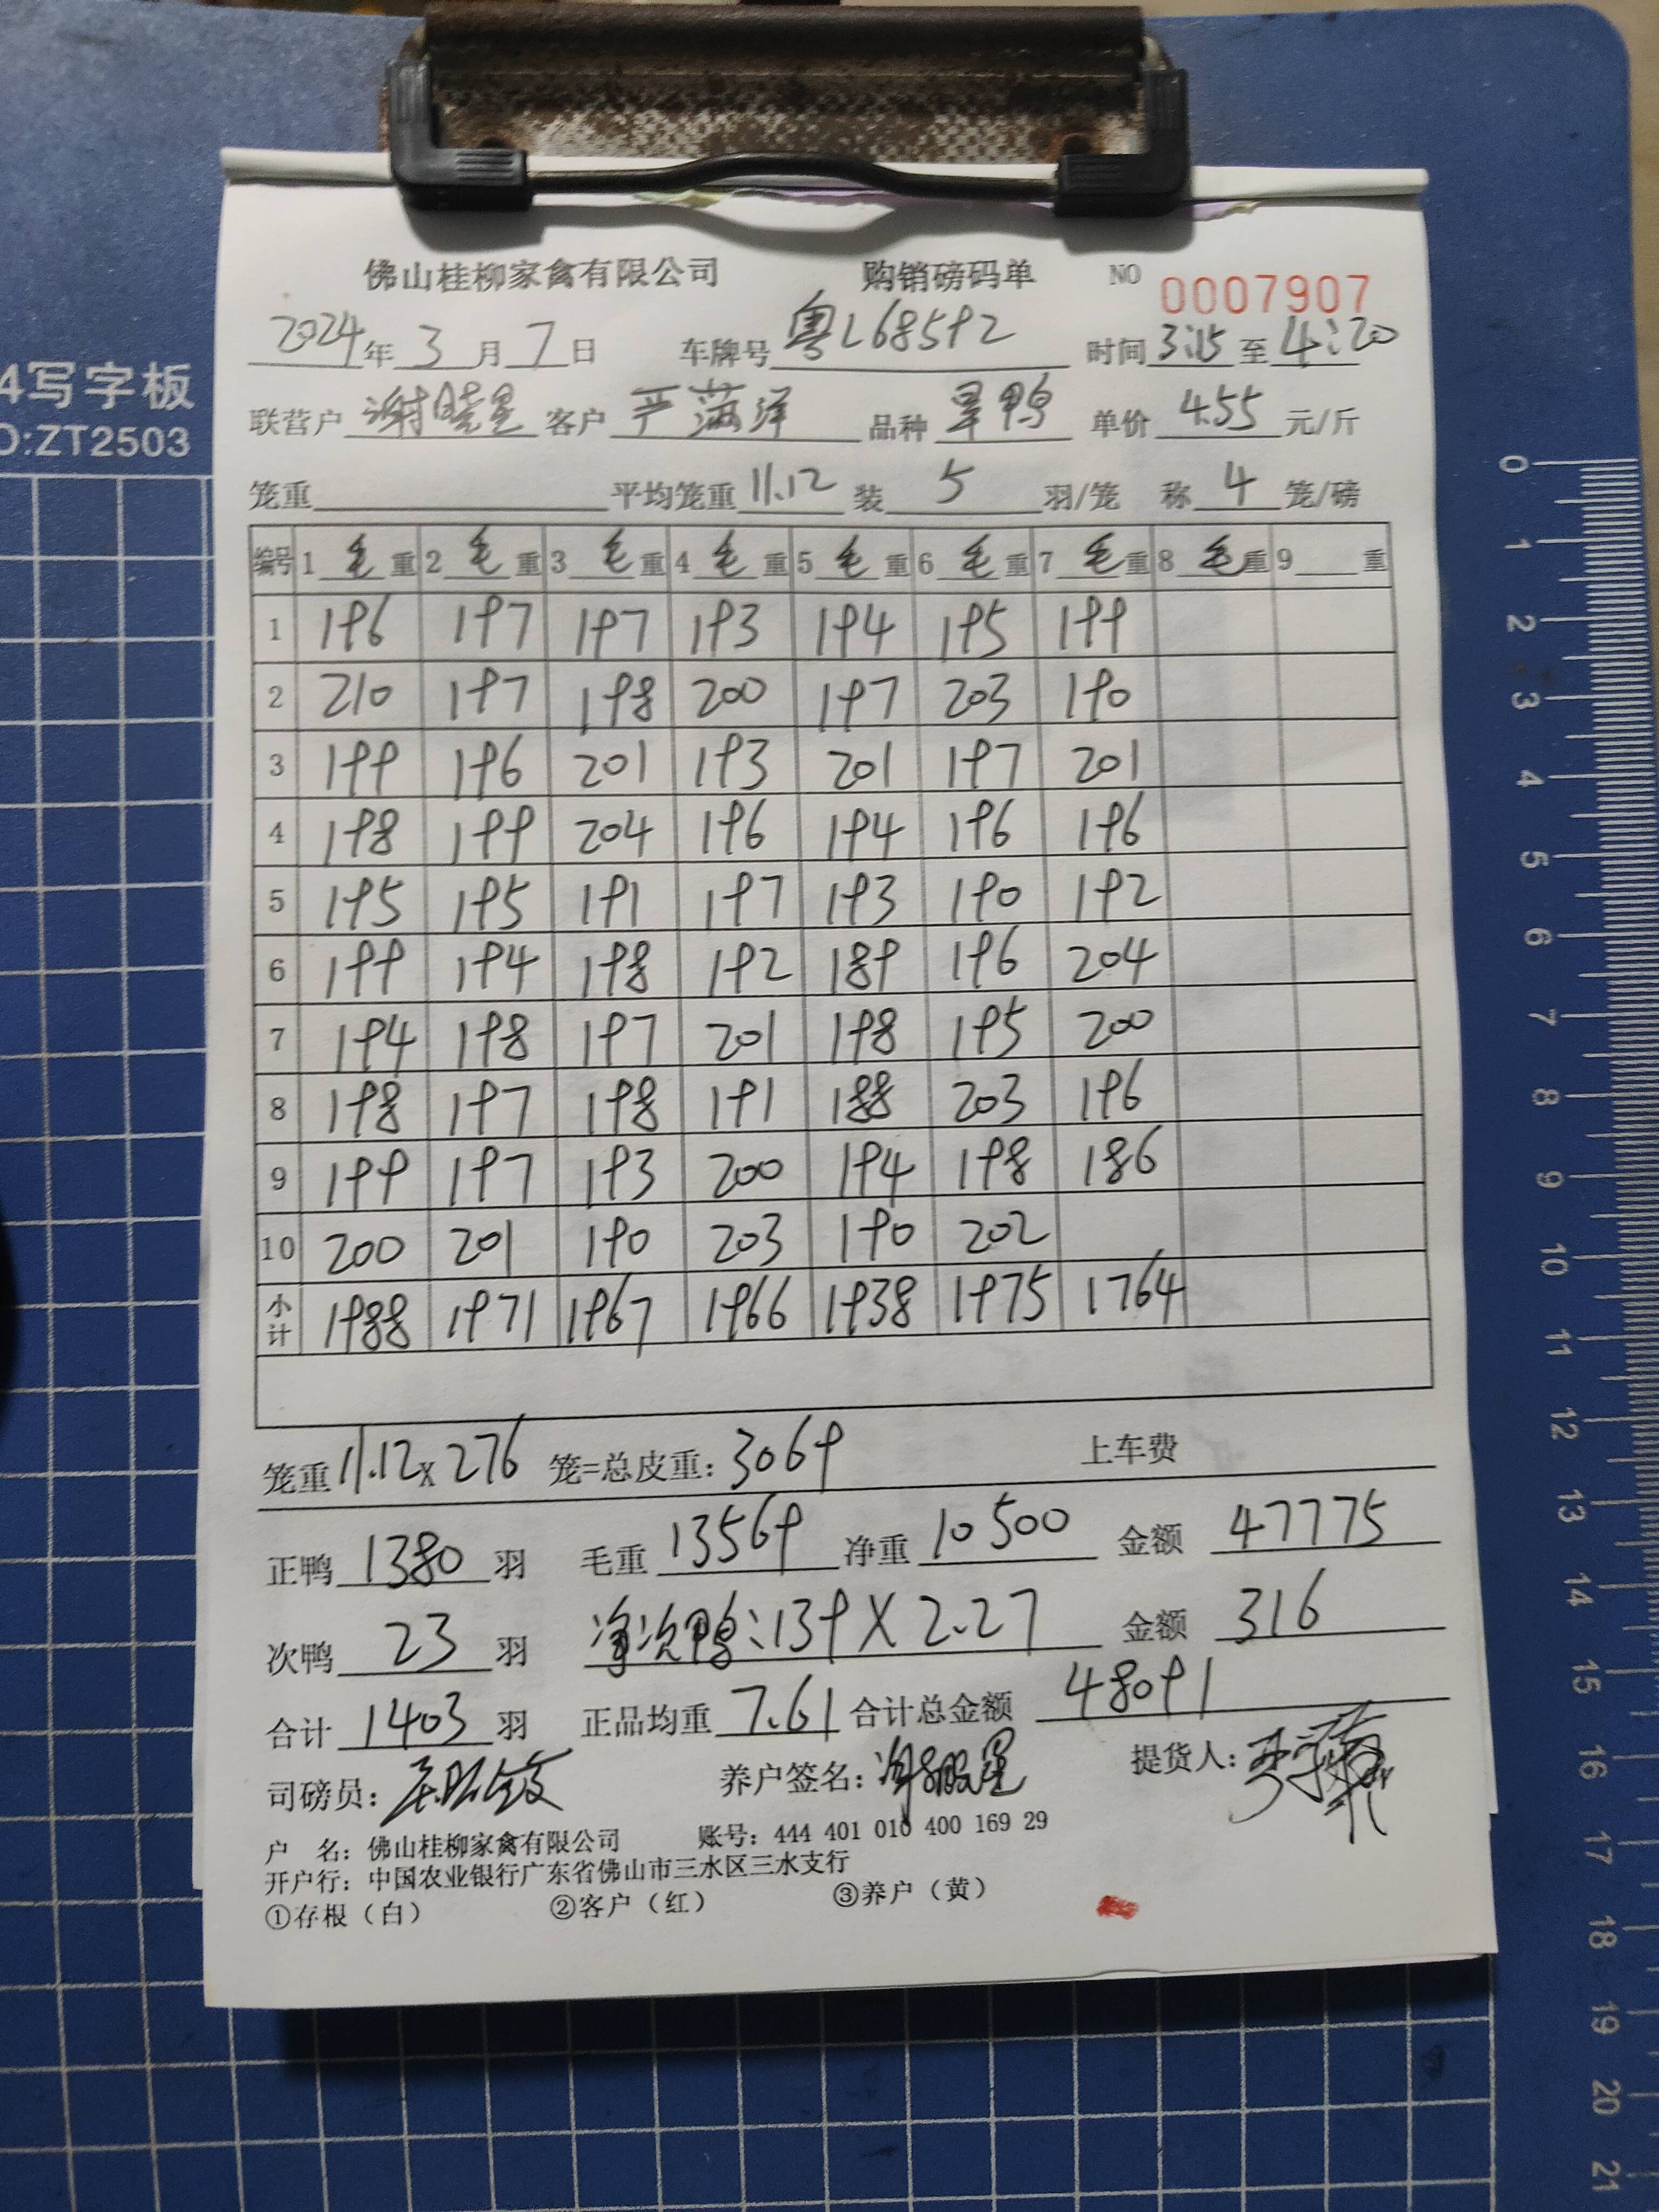 佛山桂柳家禽有限公司 购销磅码单 NO 0007907
2024年3月7日 车牌号 粤L68592 时间 3:15 至 4:20
4写字板
联营户 谢晓星 客户 严满洋 品种 旱鸭 单价 4.55 元/斤
D:ZT2503
笼重 平均笼重 11.12 装 5 羽/笼 称 4 笼/磅
编号 1 毛 重 2 毛 重 3 毛 重 4 毛 重 5 毛 重 6 毛 重 7 毛 重 8 毛 重 9 重
1 196 197 197 193 194 195 199
2 210 197 198 200 197 203 190
3 199 196 201 193 201 197 201
4 198 199 204 196 194 196 196
5 195 195 191 197 193 190 192
6 199 194 198 192 189 196 204
7 194 198 197 201 198 195 200
8 198 197 198 191 188 203 196
9 199 197 193 200 194 198 186
10 200 201 190 203 190 202
小计 1988 1971 1967 1966 1938 1975 1764
笼重 11.12 x 276 笼=总皮重: 3069 上车费
正鸭 1380 羽 毛重 13569 净重 10500 金额 47775
次鸭 23 羽 净次鸭:139 X 2.27 金额 316
合计 1403 羽 正品均重 7.61 合计总金额 48091
司磅员: 养户签名: 谢晓星 提货人:
户 名: 佛山桂柳家禽有限公司 账号: 444 401 010 400 169 29
开户行: 中国农业银行广东省佛山市三水区三水支行
①存根(白) ②客户(红) ③养户(黄)
0
1
2
3
4
5
6
7
8
9
10
11
12
13
14
15
16
17
18
19
20
21